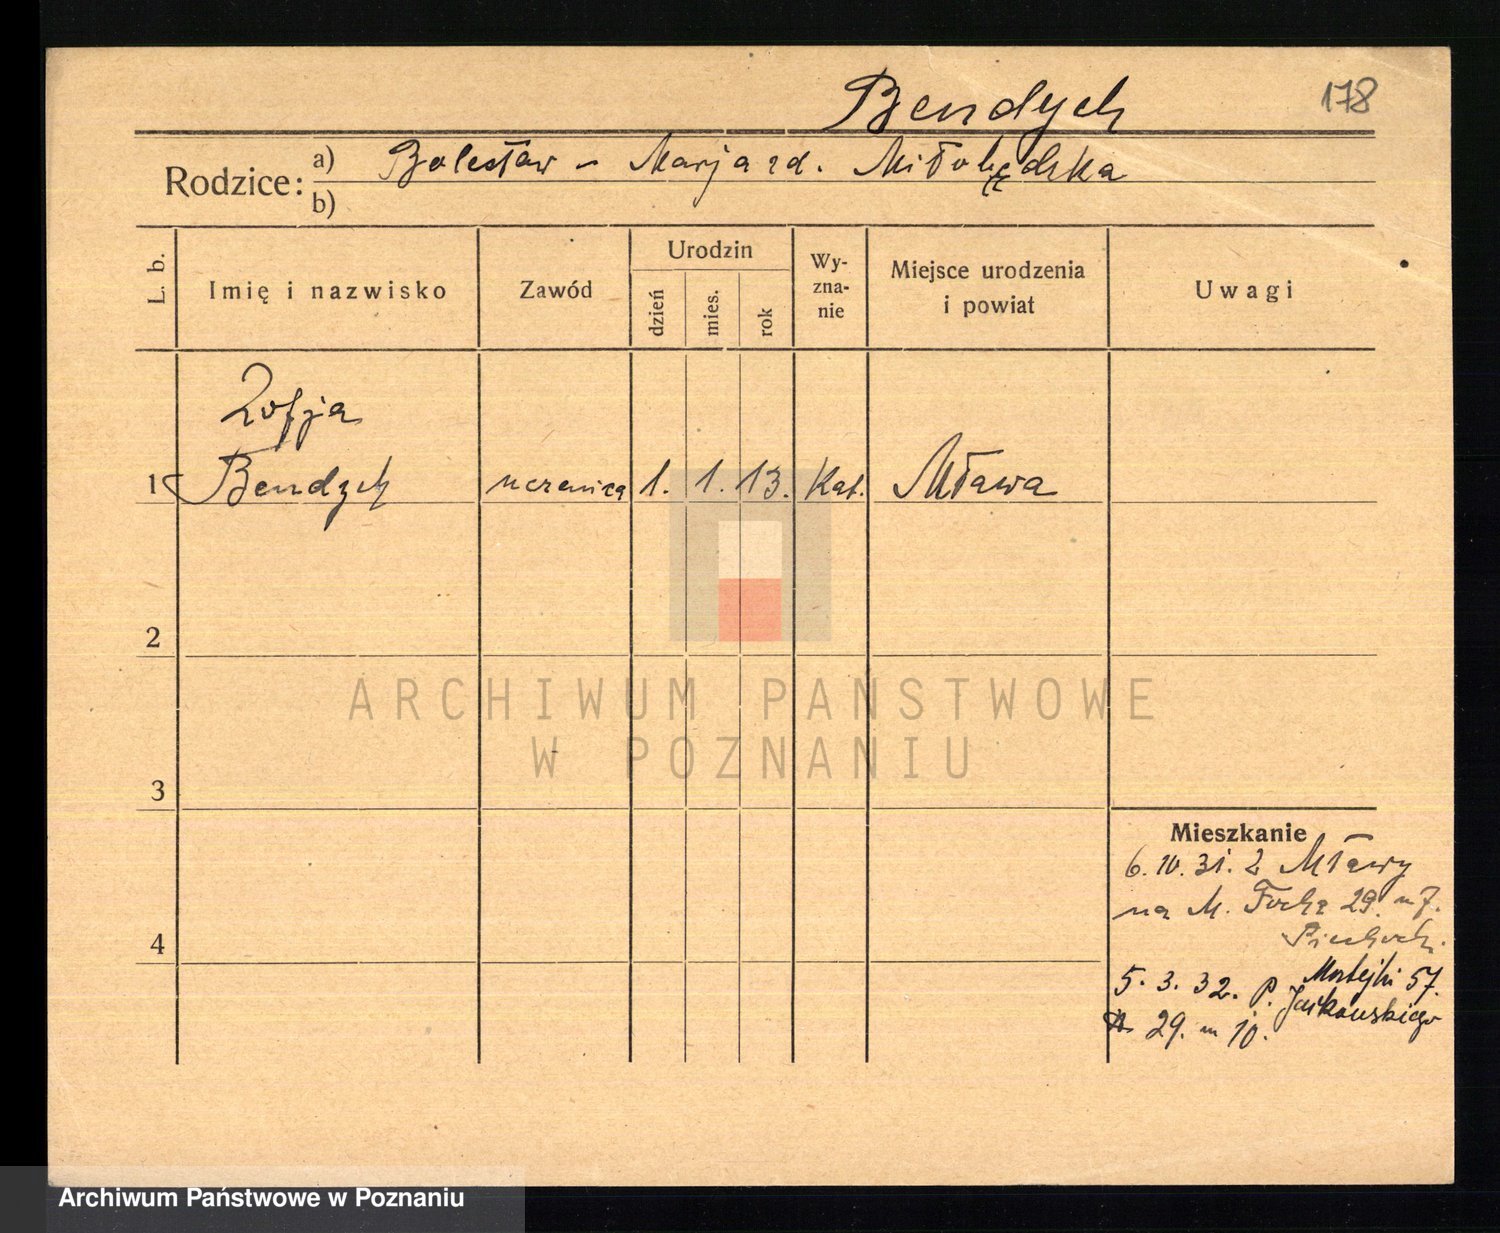 Bendych 178
Rodzice: a) Bolesław – Marja zd. Miłobędzka
b)
L. b. Imię i nazwisko Zawód Urodzin dzień mies. rok Wy-zna-nie Miejsce urodzenia i powiat Uwagi
Zofja
1 Bendych uczenica 1. 1. 13. Kat. Mława
2
ARCHIWUM PAŃSTWOWE
W POZNANIU
3
Mieszkanie
6. 10. 31. z Mławy
na M. Focha 29. m 7.
4
5. 3. 32. p. Matejki 57.
Jackowskiego
29. m 10.
Archiwum Państwowe w Poznaniu